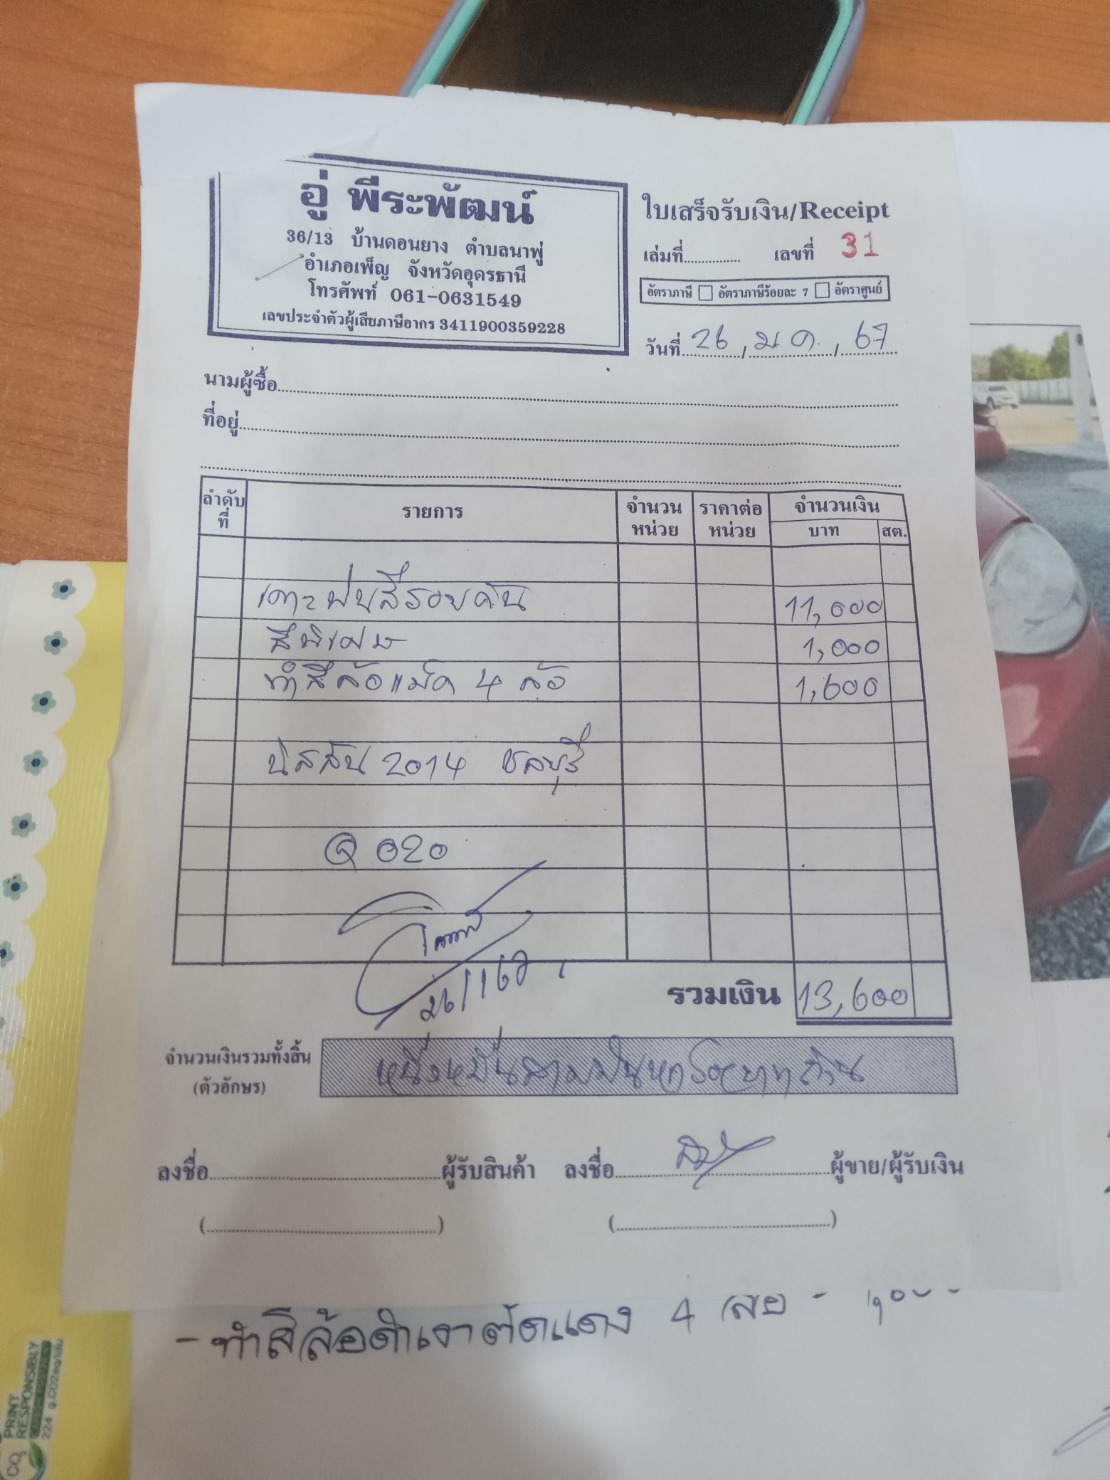 อู่ พีระพัฒน์
36/13 บ้านดอนยาง ตำบลนาพู่
อำเภอเพ็ญ จังหวัดอุดรธานี
โทรศัพท์ 061-0631549
เลขประจำตัวผู้เสียภาษีอากร 3411900359228
ใบเสร็จรับเงิน/Receipt
เล่มที่ เลขที่ 31
อัตราภาษี อัตราภาษีร้อยละ 7 อัตราศูนย์
วันที่ 26 / ม.ค. / 67
นามผู้ซื้อ
ที่อยู่
ลำดับที่ รายการ จำนวนหน่วย ราคาต่อหน่วย จำนวนเงิน
บาท สต.
เคาะพ่นสีรอบคัน 11,000
สีพิเศษ 1,000
ทำสีล้อแม็ค 4 ล้อ 1,600
นิสสัน 2014 ชลบุรี
Q 020
รวมเงิน 13,600
จำนวนเงินรวมทั้งสิ้น
(ตัวอักษร) หนึ่งหมื่นสามพันหกร้อยบาทถ้วน
ลงชื่อ ผู้รับสินค้า ลงชื่อ ผู้ขาย/ผู้รับเงิน
- ทำสีล้อดำเงาตัดแดง 4
PRINT
RESPONSIBLY